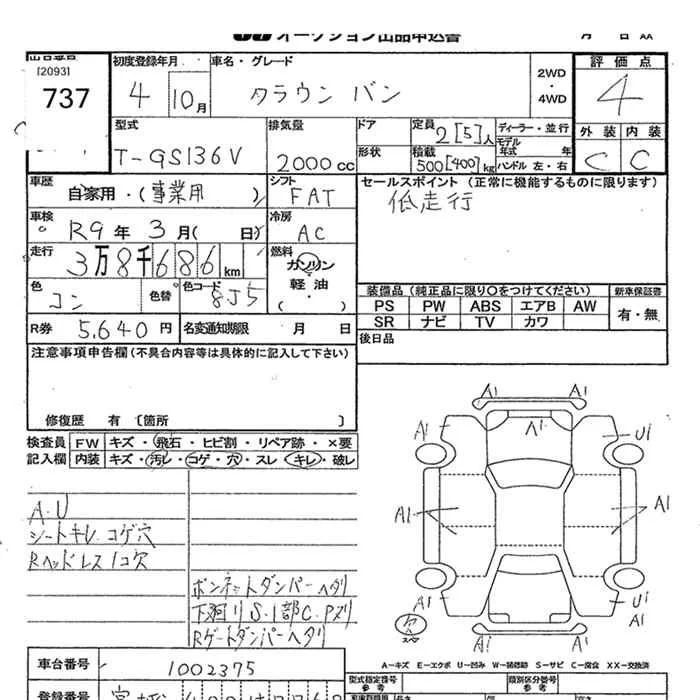 オークション出品申込書 月 日
出品番号
[2093]
737
初度登録年月
4 10月
車名・グレード
クラウン バン
2WD
・
4WD
評価点
4
外装 内装
C C
型式
T-GS136V
排気量
2000cc
ドア
形状
定員
2[5]人
積載
500[400]kg
ディーラー・並行
モデル年式 年
ハンドル 左・右
車歴
自家用・(事業用)
シフト
FAT
車検
R9年 3月( 日)
冷房
AC
走行
3万8千686km
燃料
ガソリン
軽・油
( ・ )
色
コン
色替
色コード
8J5
R券 5,640円
名変通知期限 月 日
セールスポイント(正常に機能するものに限ります)
低走行
装備品(純正品に限り○をつけてください) 新車保証書
PS PW ABS エアB AW
SR ナビ TV カワ
有・無
後日品
注意事項申告欄(不具合内容等は具体的に記入して下さい)
修復歴 有 〔箇所 〕
検査員 FW キズ・飛石・ヒビ割・リペア跡・×要
記入欄 内装 キズ・汚レ・コゲ・穴・スレ・キレ・破レ
A.U
シートキレ.コゲ穴
Rヘッドレス1コ欠
ボンネットダンパーヘタリ
下廻りS.1部C.Pヌリ
Rゲートダンパーヘタリ
A1 A1
A1 A1 U1
A1 A1
A1 U1
A1
スペア
A1 A1
A=キズ E=エクボ U=凹み W=補修跡 S=サビ C=腐食 XX=交換済
車台番号
1002375
型式指定番号
参考
類別区分番号
参考
登録番号